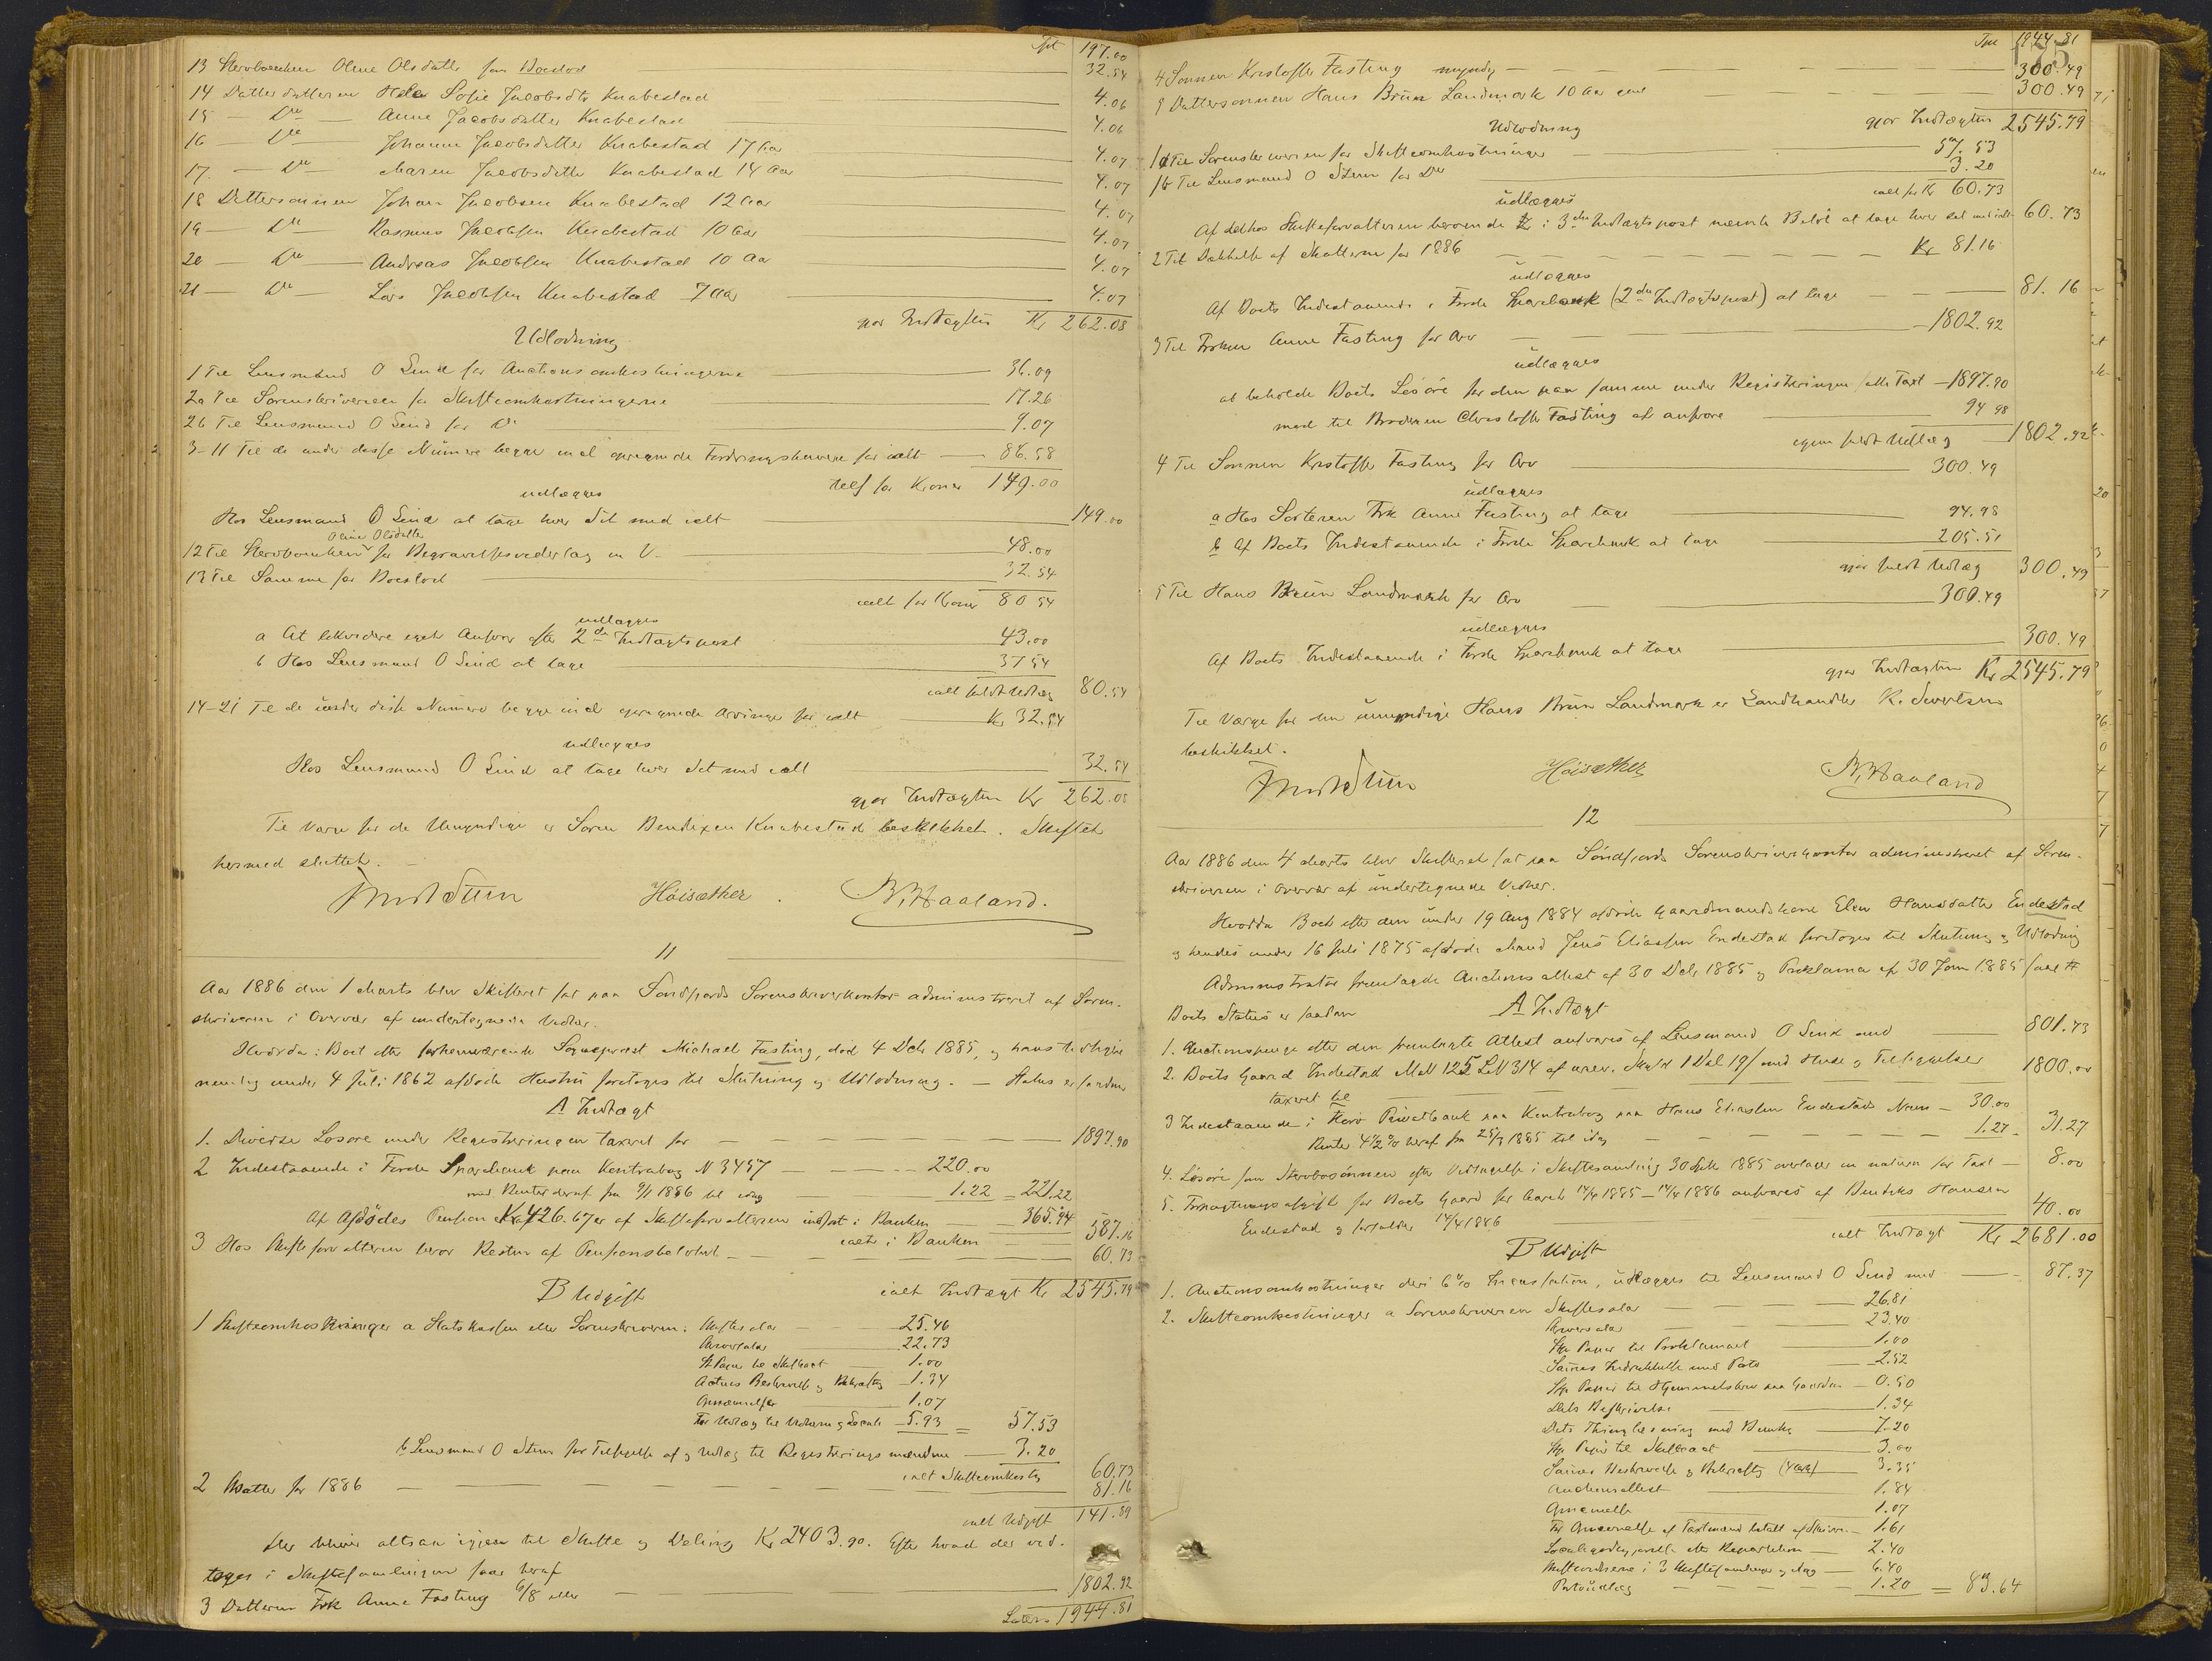 Tpt 197.00
13 Stervboenken Oline Olsdatter for Boeslod 32.54
14 Datterdatteren Sofie Jacobsdtr Knabestad 4.06
15 — Do — Anne Jacobsdatter Knabestad 4.06
16 — Do — Johanne Jacobsdatter Knabestad 17 Aar 4.07
17 — Do — Maren Jacobsdatter Knabestad 14 Aar 4.07
18 Dattersønnen Johan Jacobsen Knabestad 12 Aar 4.07
19 — Do — Rasmus Jacobsen Knabestad 10 Aar 4.07
20 — Do — Andreas Jacobsen Knabestad 10 Aar 4.07
21 — Do — Lars Jacobsen Knabestad 7 Aar 4.07
gjør Indtægten Kr 262.08
Udlodning
1 Til Lensmand O Lind for Auctionsomkostningerne 36.09
2a Til Sorenskriveren for Skifteomkostningerne 17.26
2b Til Lensmand O Lind for Do 9.07
3-11 Til de under disse Numere begge incl opregnede Fordringshavere for ialt 86.58
tils for Kroner 149.00
udlægges
Hos Lensmand O Lind at tage hver Sit med ialt 149.00
Oline Olsdatter
12 Til Stervboenken for Begravelsesvederlag m V. 48.00
13 Til Samme for Boeslod 32.54
ialt for Kroner 80 54
udlægges
a At likvidere eget Ansvar efter 2den Indtægtspost 43.00
b Hos Lensmand O Lind at tage 37 54
ialt fuldt Udlæg 80.54
14-21 Til de under disse Numere begge incl opregnede Arvinger for ialt Kr 32.54
udlægges
Hos Lensmand O Lind at tage hver Sit med ialt 32.54
gjør Indtægten Kr 262.08
Til Værge for de Umyndige er Søren Bendixen Knabestad beskikket. Skiftet
hermed sluttet. —
Høisæther. B. Haaland.
11
Aar 1886 den 1 Marts blev Skifteret sat paa Søndfjords Sorenskriverkontor administreret af Soren-
skriveren i Overvær af undertegnede Vidner.
Hvorda: Boet efter forhenværende Sogneprest Michael Fasting, død 4 Decbr 1885, og hans tidligere
nemlig under 4 Juli 1862 afdøde Hustru foretoges til Slutning og Udlodning. — Status er saadan
A Indtægt
1. Diverse Løsøre under Registreringen taxeret for 1897.90
2 Indestaaende i Førde Sparebank paa Kontrabog N 3457 220.00
med Renter deraf fra 9/1 1886 til idag 1.22 = 221.22
Af Afdødes Pension Kr 426.67 er af Skifteforvalteren indsat i Banken 365.94
ialt i Banken 587.16
3 Hos Skifteforvalteren beror Resten af Pensionsbeløbet 60.73
ialt Indtægt Kr 2545.79
B Udgift
1 Skifteomkostninger a Statskassen eller Sorenskriveren: Skiftesalær 25.46
Arvesalær 22.73
St Papir til Skiftebrevet 1.00
Actens Beskrivelse og Bekræftg 1.34
Annammelse 1.07
For Udlæg til Vidnerne og Locale 5.93 = 57.53
b Lensmand O Steen for Tilsigelse af og Udlæg til Registreringsmændene 3.20
ialt Skifteomkostg 60.73
2 Skatter for 1886 81.16
ialt Udgift 141.89
Der bliver altsaa igjen til Skifte og Deling Kr 2403.90. Efter hvad der ved-
toges i Skiftesamlingen faar heraf
3 Datteren Frk Anne Fasting 6/8 eller 1802.92
Lateris 1944.81
Tpt 1944.81
75
4 Sønnen Kristoffer Fasting myndig 300.49
5 Dattersønnen Hans Brun Landmark 10 Aar gml 300.49
gjør Indtægten 2545.79
Udlodning
1a Til Sorenskriveren for Skifteomkostninger 57.53
1b Til Lensmand O Steen for Do 3.20
ialt for Kr 60.73
udlægges
Af det hos Skifteforvalteren beroende i 3die Indtægtspost nævnte Beløb at tage hver sit med ialt 60.73
2 Til Dækkelse af Skatterne for 1886 Kr 81.16
udlægges
Af Boets Indestaaende i Førde Sparebank (2den Indtægtspost) at tage 81.16
3 Til Frøken Anne Fasting for Arv 1802.92
udlægges
at beholde Boets Løsøre for den paa samme under Registreringen satte Taxt 1897.90
mod til Broderen Christoffer Fasting at ansvare 94 98
igjen fuldt Udlæg 1802.92
4 Til Sønnen Kristoffer Fasting for Arv 300.49
udlægges
a Hos Søsteren Frk Anne Fasting at tage 94.98
b Af Boets Indestaaende i Førde Sparebank at tage 205.51
gjør fuldt Udlæg 300.49
5 Til Hans Brun Landmark for Arv 300.49
udlægges
Af Boets Indestaaende i Førde Sparebank at tage 300.49
gjør Indtægten Kr 2545.79
Til Værge for den umyndige Hans Brun Landmark er Landhandler K. Sivertsen
beskikket.
Høisæther B. Haaland
12
Aar 1886 den 4 Marts blev Skifteret sat paa Søndfjords Sorenskriverkontor administreret af Soren-
skriveren i Overvær af undertegnede Vidner.
Hvorda Boet efter den under 19 Aug 1884 afdøde Gaardmandskone Elen Hansdatter Endestad
og hendes under 16 Juli 1875 afdøde Mand Jens Eliassen Endestad foretoges til Slutning og Udlodning
Administrator fremlagde Auctionsattest af 30 Decbr 1885 og Proklama af 30 Jan 1885
Boets Status er saadan A Indtægt
1. Auctionspenge efter den fremlagte Attest ansvares af Lensmand O Lind med 801.73
2. Boets Gaard Endestad MN 125 LN 314 af urev. Skyld 1 Dal 19 med Huse og Tilliggelser
taxeret til 1800.00
3 Indestaaende i Florø Privatbank paa Kontrabog paa Hans Eliassen Endestads Navn 30.00
Renter 4 1/2 % heraf fra 25/3 1885 til idag 1.27 31.27
4. Løsøre som Stervbosønnen efter Vedtagelse i Skiftesamling 30 1885 overtager in natura for Taxt 8.00
5. Forpagtningsafgift for Boets Gaard for Aaret 14/4 1885 – 14/4 1886 ansvares af Hansen
Endestad og forfalder 14/4 1886 40.00
ialt Indtægt Kr 2681.00
B Udgift
1. Auctionsomkostninger deri 6% Incassation, udlægges til Lensmand O Lind med 87.37
2. Skifteomkostninger a Sorenskriveren Skiftesalær 26.81
Arvesalær 23.40
St Papir til Proklamaet 1.00
Sammes Indrykkelse med Porto 2.52
St Papir til Hjemmelsbrev paa Gaarden 0.50
Dets Beskrivelse 1.34
Dets Thinglæsning med 7.20
St Papir til Skiftebrevet 3.00
Sammes Beskrivelse og Bekræftg 3.35
Auctionsattest 1.84
Annammelse 1.07
For Annammelse af Taxtmænd betalt af Skriveren 1.61
Localegodtgjørelse efter Repartition 2.40
Skiftevidnerne i 3 Skiftesamlinger og idag 6.40
Portoudlæg 1.20 = 83.64